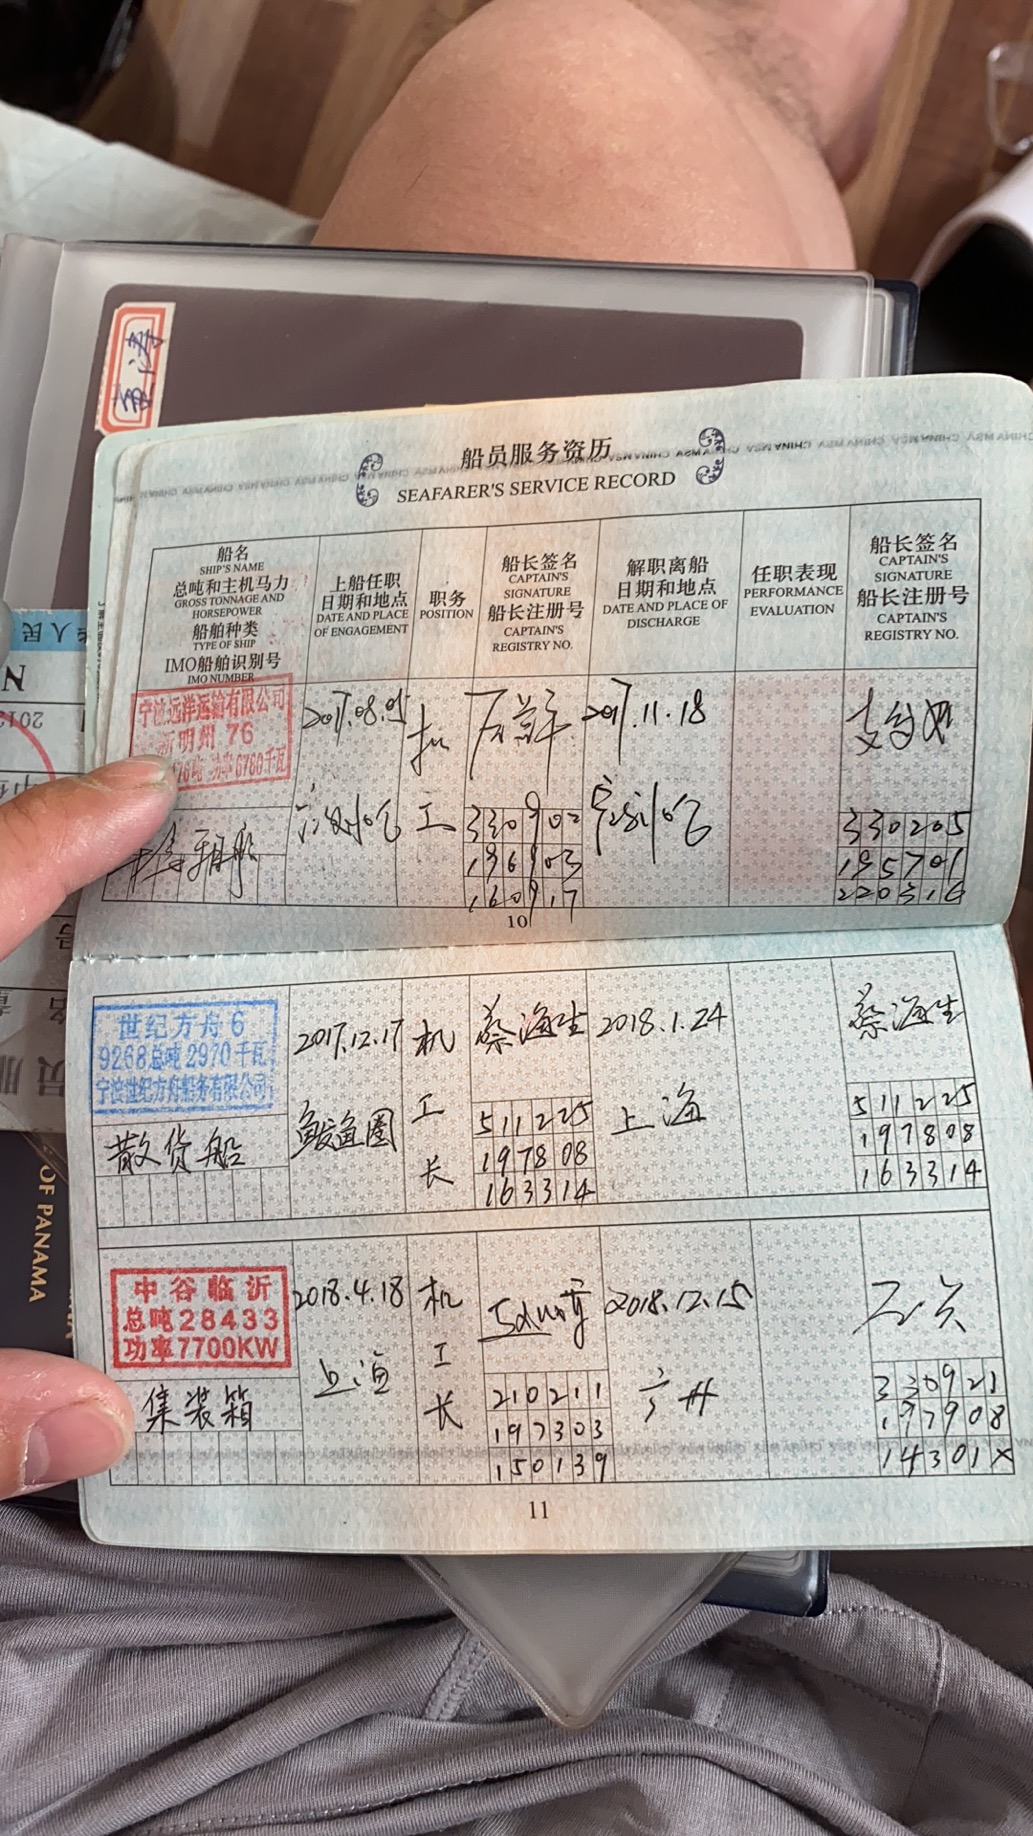 船员服务资历
SEAFARER'S SERVICE RECORD
船名
SHIP'S NAME
总吨和主机马力
GROSS TONNAGE AND
HORSEPOWER
船舶种类
TYPE OF SHIP
IMO船舶识别号
IMO NUMBER
上船任职
日期和地点
DATE AND PLACE
OF ENGAGEMENT
职务
POSITION
船长签名
CAPTAIN'S
SIGNATURE
船长注册号
CAPTAIN'S
REGISTRY NO.
解职离船
日期和地点
DATE AND PLACE OF
DISCHARGE
任职表现
PERFORMANCE
EVALUATION
船长签名
CAPTAIN'S
SIGNATURE
船长注册号
CAPTAIN'S
REGISTRY NO.
宁波远洋运输有限公司
新明州 76
功率6780千瓦
2017.08.05
机
工
330902
196903
160917
2017.11.18
330205
195701
220316
10
世纪方舟6
9268总吨2970千瓦
宁波世纪方舟船务有限公司
散货船
2017.12.17
鲅鱼圈
机
工
长
蔡海生
511225
197808
163314
2018.1.24
上海
蔡海生
511225
197808
163314
中谷临沂
总吨28433
功率7700KW
集装箱
2018.4.18
上海
机
工
长
210211
197303
150139
2018.12.15
广州
330921
197908
14301X
11
OF PANAMA